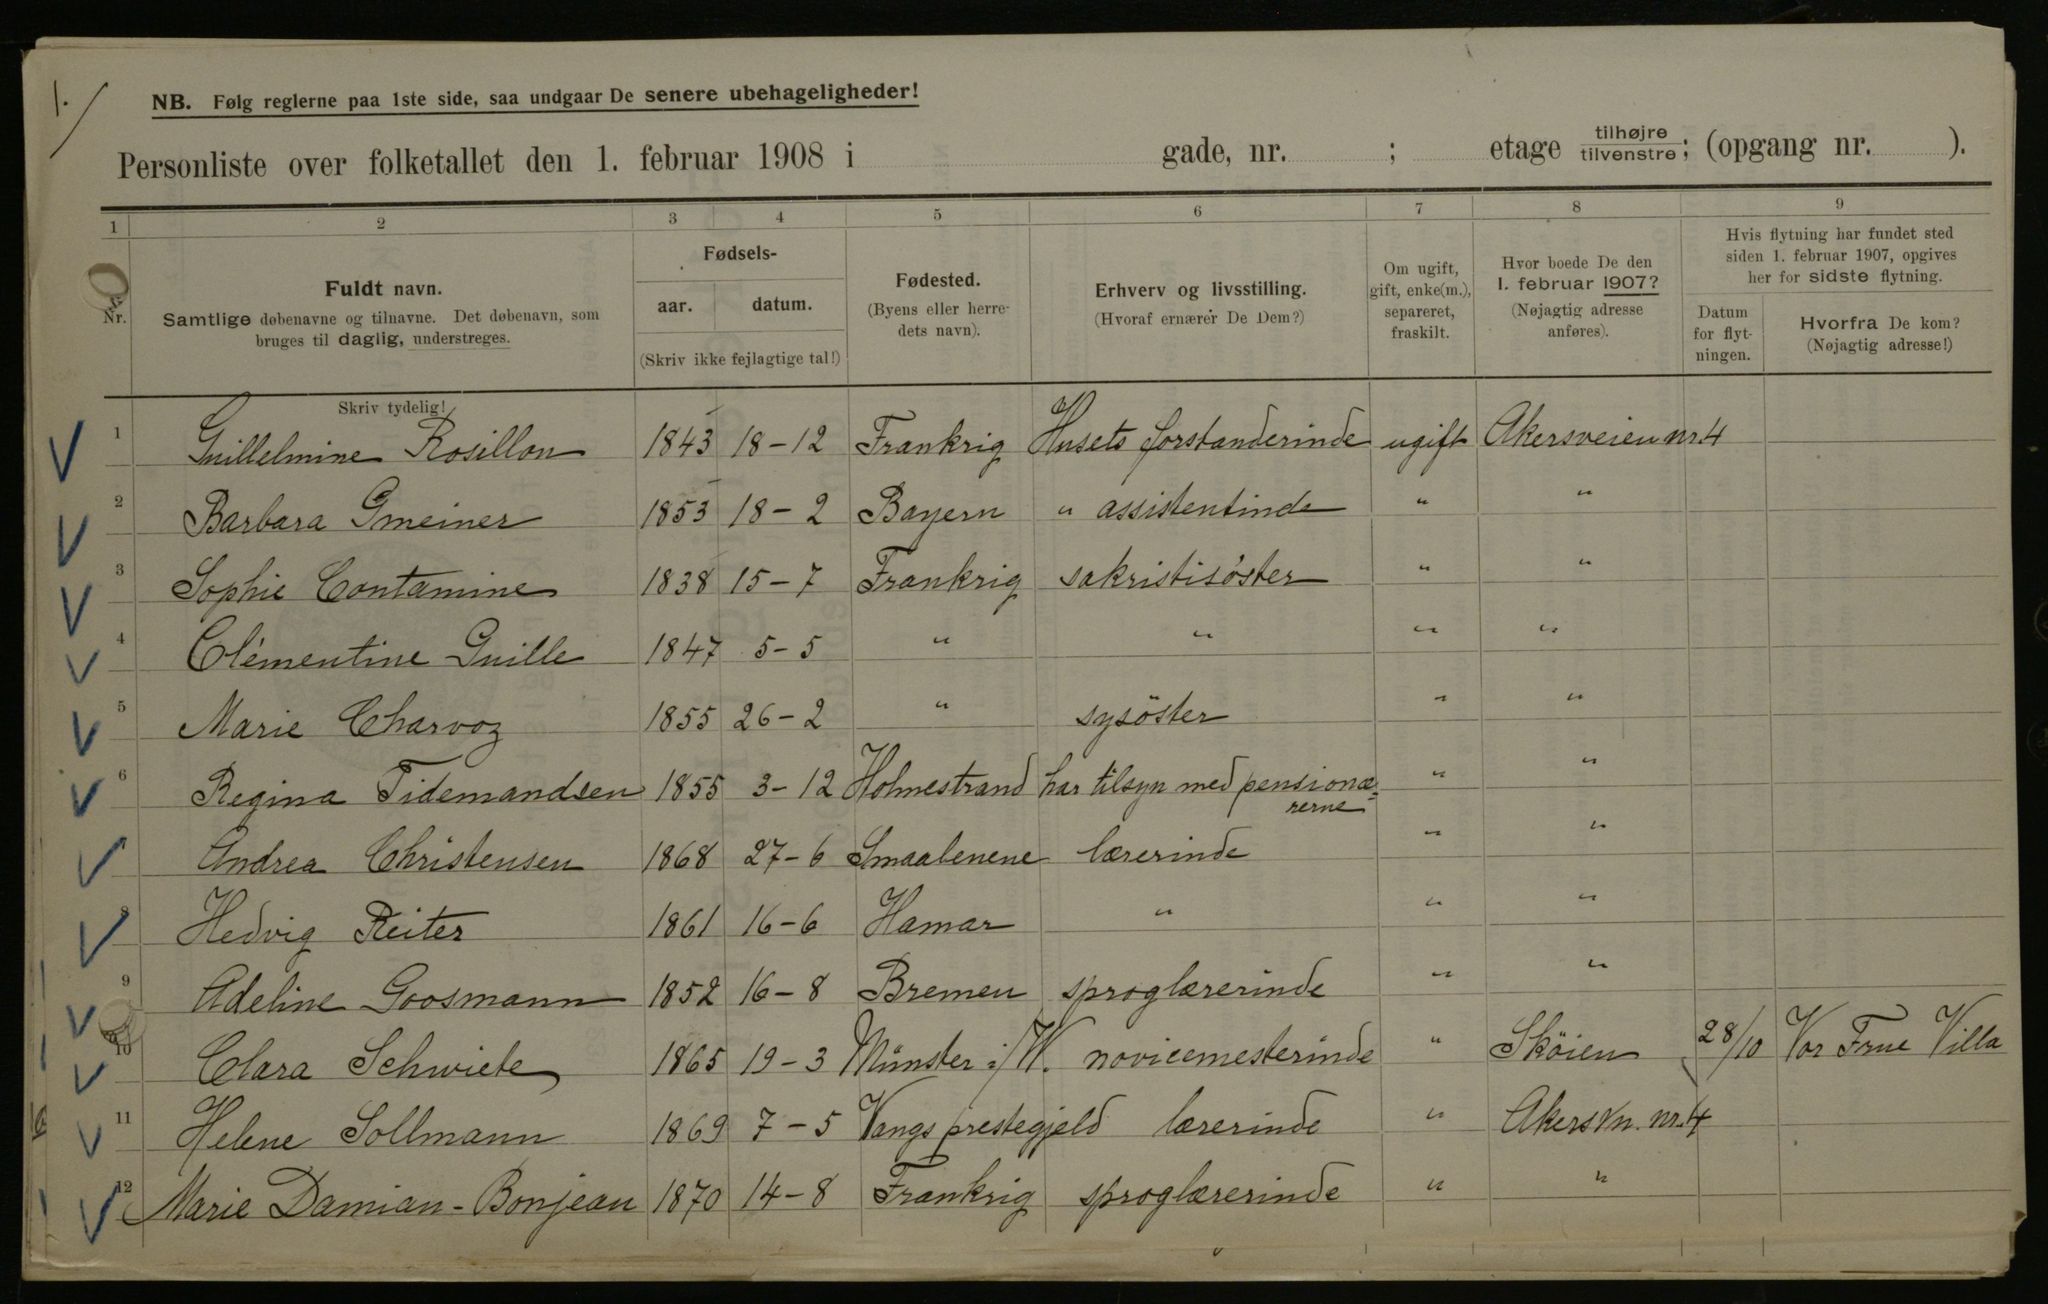 1.
NB. Følg reglerne paa 1ste side, saa undgaar De senere ubehageligheder!
Personliste over folketallet den 1. februar 1908 i gade, nr. ; etage tilhøjre/tilvenstre; (opgang nr. ).
1 2 3 4 5 6 7 8 9
Nr.
Fuldt navn.
Samtlige døbenavne og tilnavne. Det døbenavn, som
bruges til daglig, understreges.
Skriv tydelig!
Fødsels-
aar. datum.
(Skriv ikke fejlagtige tal!)
Fødested.
(Byens eller herre-
dets navn).
Erhverv og livsstilling.
(Hvoraf ernærer De Dem?)
Om ugift,
gift, enke(m.),
separeret,
fraskilt.
Hvor boede De den
1. februar 1907?
(Nøjagtig adresse
anføres).
Hvis flytning har fundet sted
siden 1. februar 1907, opgives
her for sidste flytning.
Datum
for flyt-
ningen.
Hvorfra De kom?
(Nøjagtig adresse!)
1 Guillelmine Rosillon 1843 18-12 Frankrig Husets forstanderinde ugift Akersveien nr. 4
2 Barbara Gmeiner 1853 18-2 Bayern " assistentinde " "
3 Sophie Contamine 1838 15-7 Frankrig sakristisöster " "
4 Clémentine Guille 1847 5-5 " " " "
5 Marie Charvoz 1855 26-2 " sysöster " "
6 Regina Tidemandsen 1855 3-12 Holmestrand har tilsyn med pensionæ=
rerne " "
Andrea Christensen 1868 27-6 Smaalenene lærerinde " "
8 Hedvig Reiter 1861 16-6 Hamar " " "
9 Adeline Goosmann 1852 16-8 Bremen sproglærerinde " "
10 Clara Schwiete 1865 19-3 Münster i/W. novicemesterinde " Sköien 28/10 Vor Frue Villa
11 Helene Sollmann 1869 7-5 Vangs prestegjeld lærerinde " Akersvn. nr. 4
12 Marie Damian-Bonjean 1870 14-8 Frankrig sproglærerinde " "